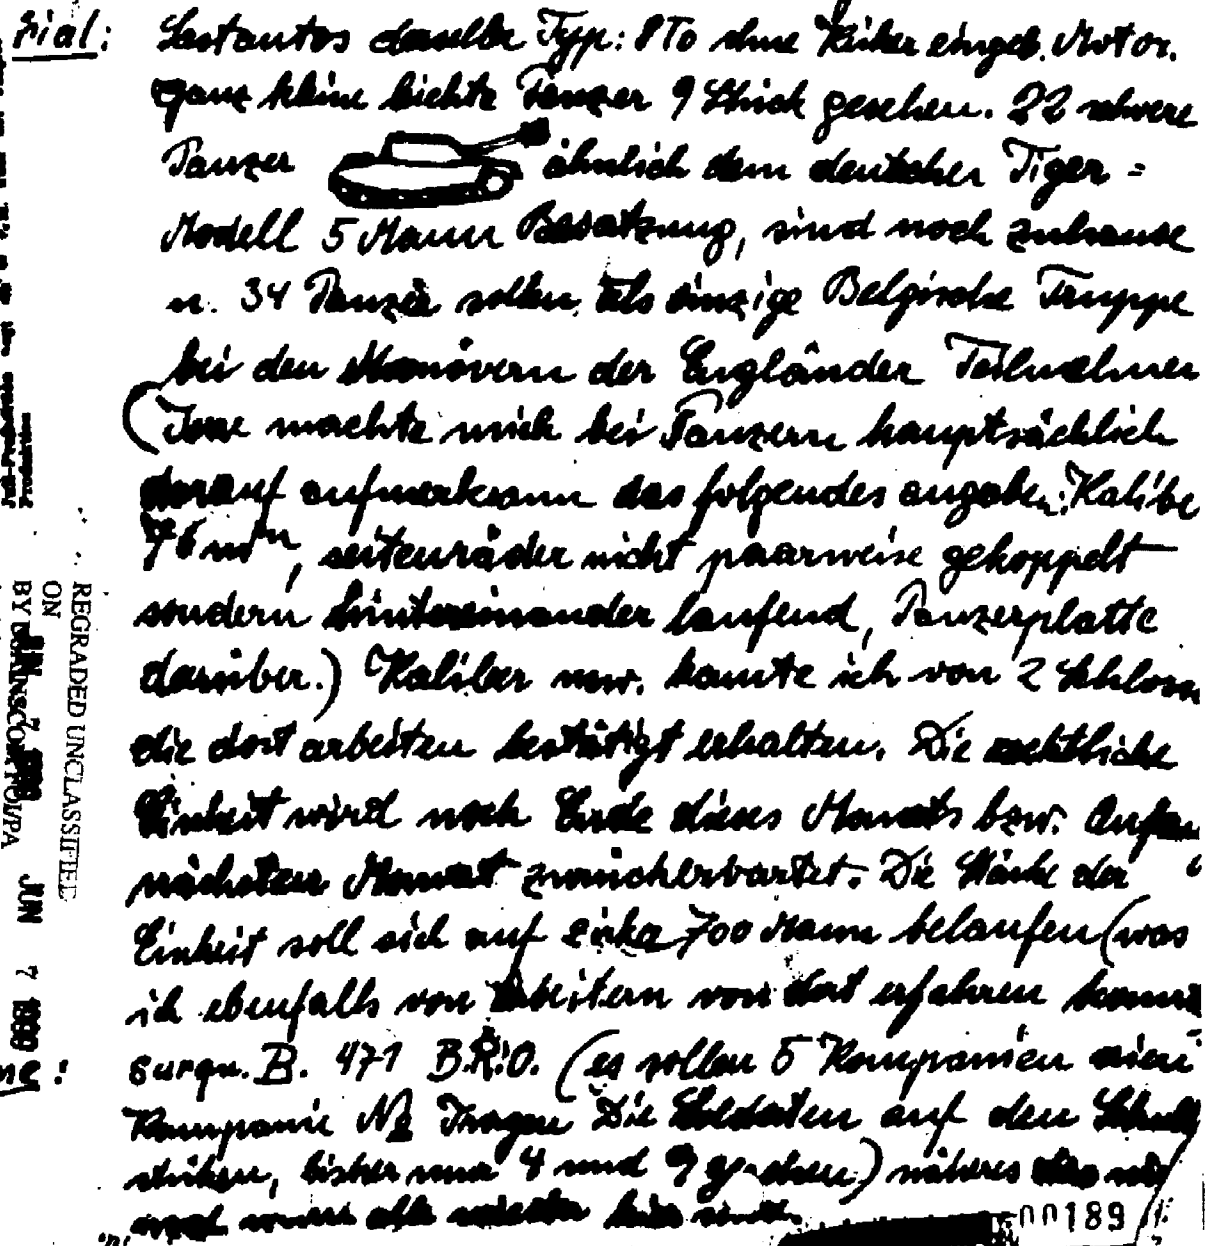 zial:
Lastautos derselbe Typ: 8To ohne Kühler eingeb. Motor.
ganz kleine leichte Panzer 9 Stück gesehen. 22 schwere
Panzer ähnlich dem deutschen Tiger =
Modell 5 Mann Besatzung, sind noch zuhause
u. 34 Panzer sollen als einzige Belgische Truppe
bei den Manövern der Engländer Teilnehmen
machte mich bei Panzern hauptsächlich
darauf aufmerksam das folgendes angeben: Kalibe
76 mm, seitenräder nicht paarweise gekoppelt
sondern hintereinander laufend, Panzerplatte
darüber.) Kaliber usw. konnte ich von 2 Schloss
die dort arbeiten bestätigt erhalten. Die
Einheit wird noch Ende dieses Monats bzw. Anfan
nächsten Monat zurückerwartet. Die Stärke der
Einheit soll sich auf zirka 700 Mann belaufen (was
ich ebenfalls von Arbeitern von dort erfahren konnt
B. 471 B.R.O. (es sollen 5 Kompanien sien
Kompanie Tragen Die Soldaten auf den Schult
stücken, bisher nur 4 und 9 gesehen) näheres
wenn alle wieder hier sind.
00189
REGRADED UNCLASSIFIED
ON
JUN 7
BY
JUN 7
ne:
Produktion